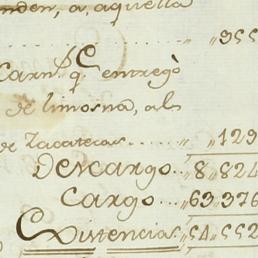 enden, a, aquella
........ „ „955
Carn.^s q.^e entregò
de limosna, al
de Zacatecas...... „ „129
Descargo... „8„824
Cargo.. „63„376
Existencias „54„552